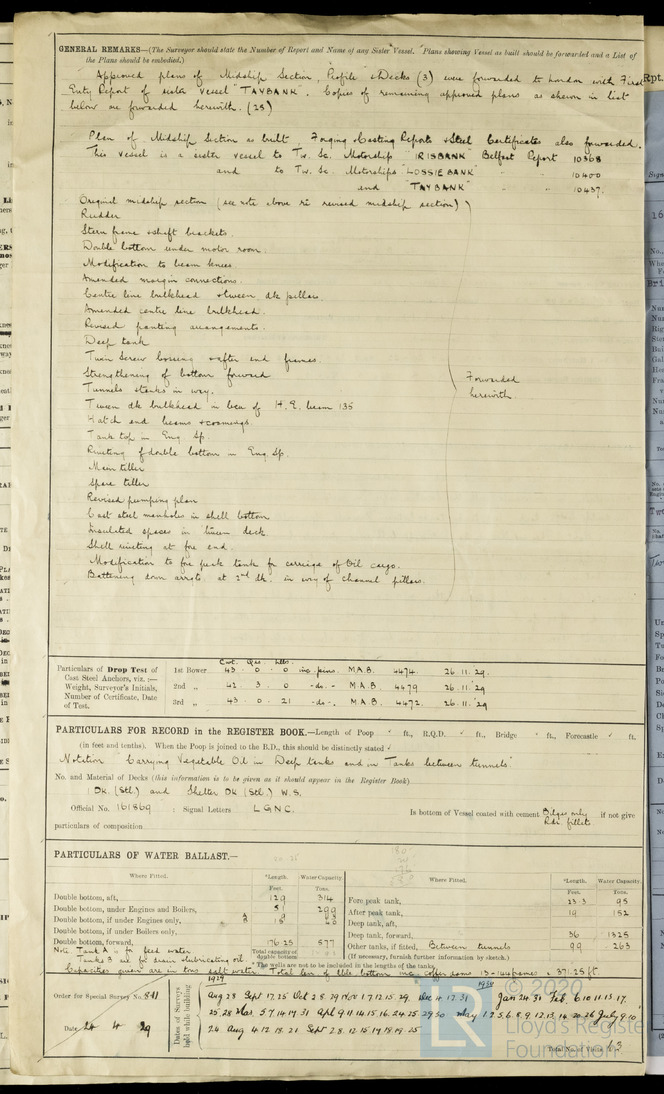 GENERAL REMARKS—(The Surveyor should state the Number of Report and Name of any Sister Vessel. Plans showing Vessel as built should be forwarded and a List of
the Plans should be embodied.)
Approved plans of Midship Section, Profile & Decks (3) were forwarded to London with First
Entry Report of sister vessel "TAYBANK". Copies of remaining approved plans as shewn in list
below are forwarded herewith. (25)
Plan of Midship Section as built, Forging & Casting Reports & Steel Certificates also forwarded.
This vessel is a sister vessel to Tw. Sc. Motorship "IRISBANK" Belfast Report 10368
and to Tw. Sc. Motorships "LOSSIEBANK" " " 10400
and "TAYBANK" " " 10437.
Original midship section (see note above re revised midship section)
Rudder
Stern frame & shaft brackets.
Double bottom under motor room.
Modification to beam knees
Amended margin connections.
Centre line bulkhead & tween dk pillars.
Amended centre line bulkhead.
Revised panting arrangements.
Deep tank
Twin Screw bossing & after end frames.
Strengthening of bottom forward
Forwarded
Tunnels & tanks in way.
herewith
Tween dk bulkhead in lieu of H.E. beam 135
Hatch end beams & coamings
Tank top in Eng. Sp.
Riveting of double bottom in Eng. Sp.
Main tiller
Spare tiller
Revised pumping plan
Cast steel manholes in shell bottom
Insulated spaces in tween deck.
Shell riveting at fore end.
Modification to fore peak tank for carriage of Oil cargo.
Battening down arrgts. at 2nd dk. in way of channel pillars.
Particulars of Drop Test of
Cast Steel Anchors, viz. :—
Weight, Surveyor's Initials,
Number of Certificate, Date
of Test.
Cwt. Qrs. Lbs.
1st Bower 43 . 0 . 0 inc. pins. M.A.B. 4474. 26.11.29.
2nd " 42 . 3 . 0 -do.- M.A.B. 4479 26.11.29
3rd " 43 . 0 . 21 -do.- M.A.B. 4472. 26.11.29
PARTICULARS FOR RECORD in the REGISTER BOOK.—Length of Poop ft., R.Q.D. ft., Bridge ft., Forecastle ft.
(in feet and tenths). When the Poop is joined to the B.D., this should be distinctly stated
Notation "Carrying Vegetable Oil in Deep tanks and in Tanks between tunnels"
No. and Material of Decks (this information is to be given as it should appear in the Register Book)
1 Dk. (Stl.) and Shelter Dk (Stl.) W.S.
Official No. 161869 : Signal Letters LGNC. Is bottom of Vessel coated with cement Bilges only if not give
particulars of composition
PARTICULARS OF WATER BALLAST.—
Where Fitted. *Length. Water Capacity. Where Fitted. *Length. Water Capacity.
Feet. Tons. Feet. Tons.
Double bottom, aft, 129 314 Fore peak tank, 23.3 95
Double bottom, under Engines and Boilers, 51 299 After peak tank, 19 152
Double bottom, if under Engines only, A 9
B 15 Deep tank, aft,
Double bottom, if under Boilers only, Deep tank, forward, 36 1325
Double bottom, forward, 176.25 577 Other tanks, if fitted, Between tunnels 99 263
Note. Tank A is for feed water Total capacity of
double bottom (If necessary, furnish further information by sketch.)
Tanks B are for drain & lubricating oil * The wells are not to be included in the lengths of the tanks.
Capacities given are in tons salt water. Total len. of dble bottom inc. coffer dams 13–144 frames = 371.25 ft.
Order for Special Survey No. 841
Date 24 4 29
Dates of Surveys
held while building
1929 1930
Aug 28 Sept 17.25 Oct 8.29 Dec 4 17.31 Jan 24 31 Feb 6 10 11 15 17.
25.28 Mar 5 7 14 19 31 Apl 9 11 14 15 16 24 25 29 30 May 1 2 5 6 8 9 12 13 14 20 26 July 9 10
24 Aug 4 12 18 21 Sept 2 8 12 15 17 18 19 25
Total No. of Visits
© 2020
Lloyd's Register
Foundation
LR